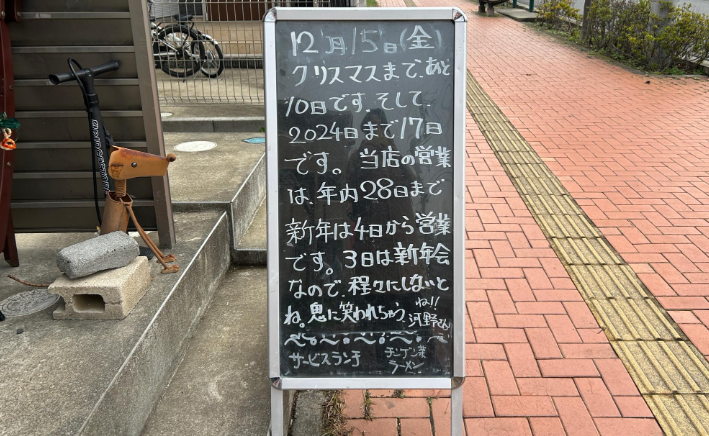 12月15日(金)
クリスマスまで、あと
10日です。そして、
2024日まで17日
です。当店の営業
は、年内28日まで
新年は4日から営業
です。3日は新年会
なので、程々にしないと
ね。鬼に笑われちゃう、ね!!
河野さん
サービスランチ
チンゲン菜
ラーメン